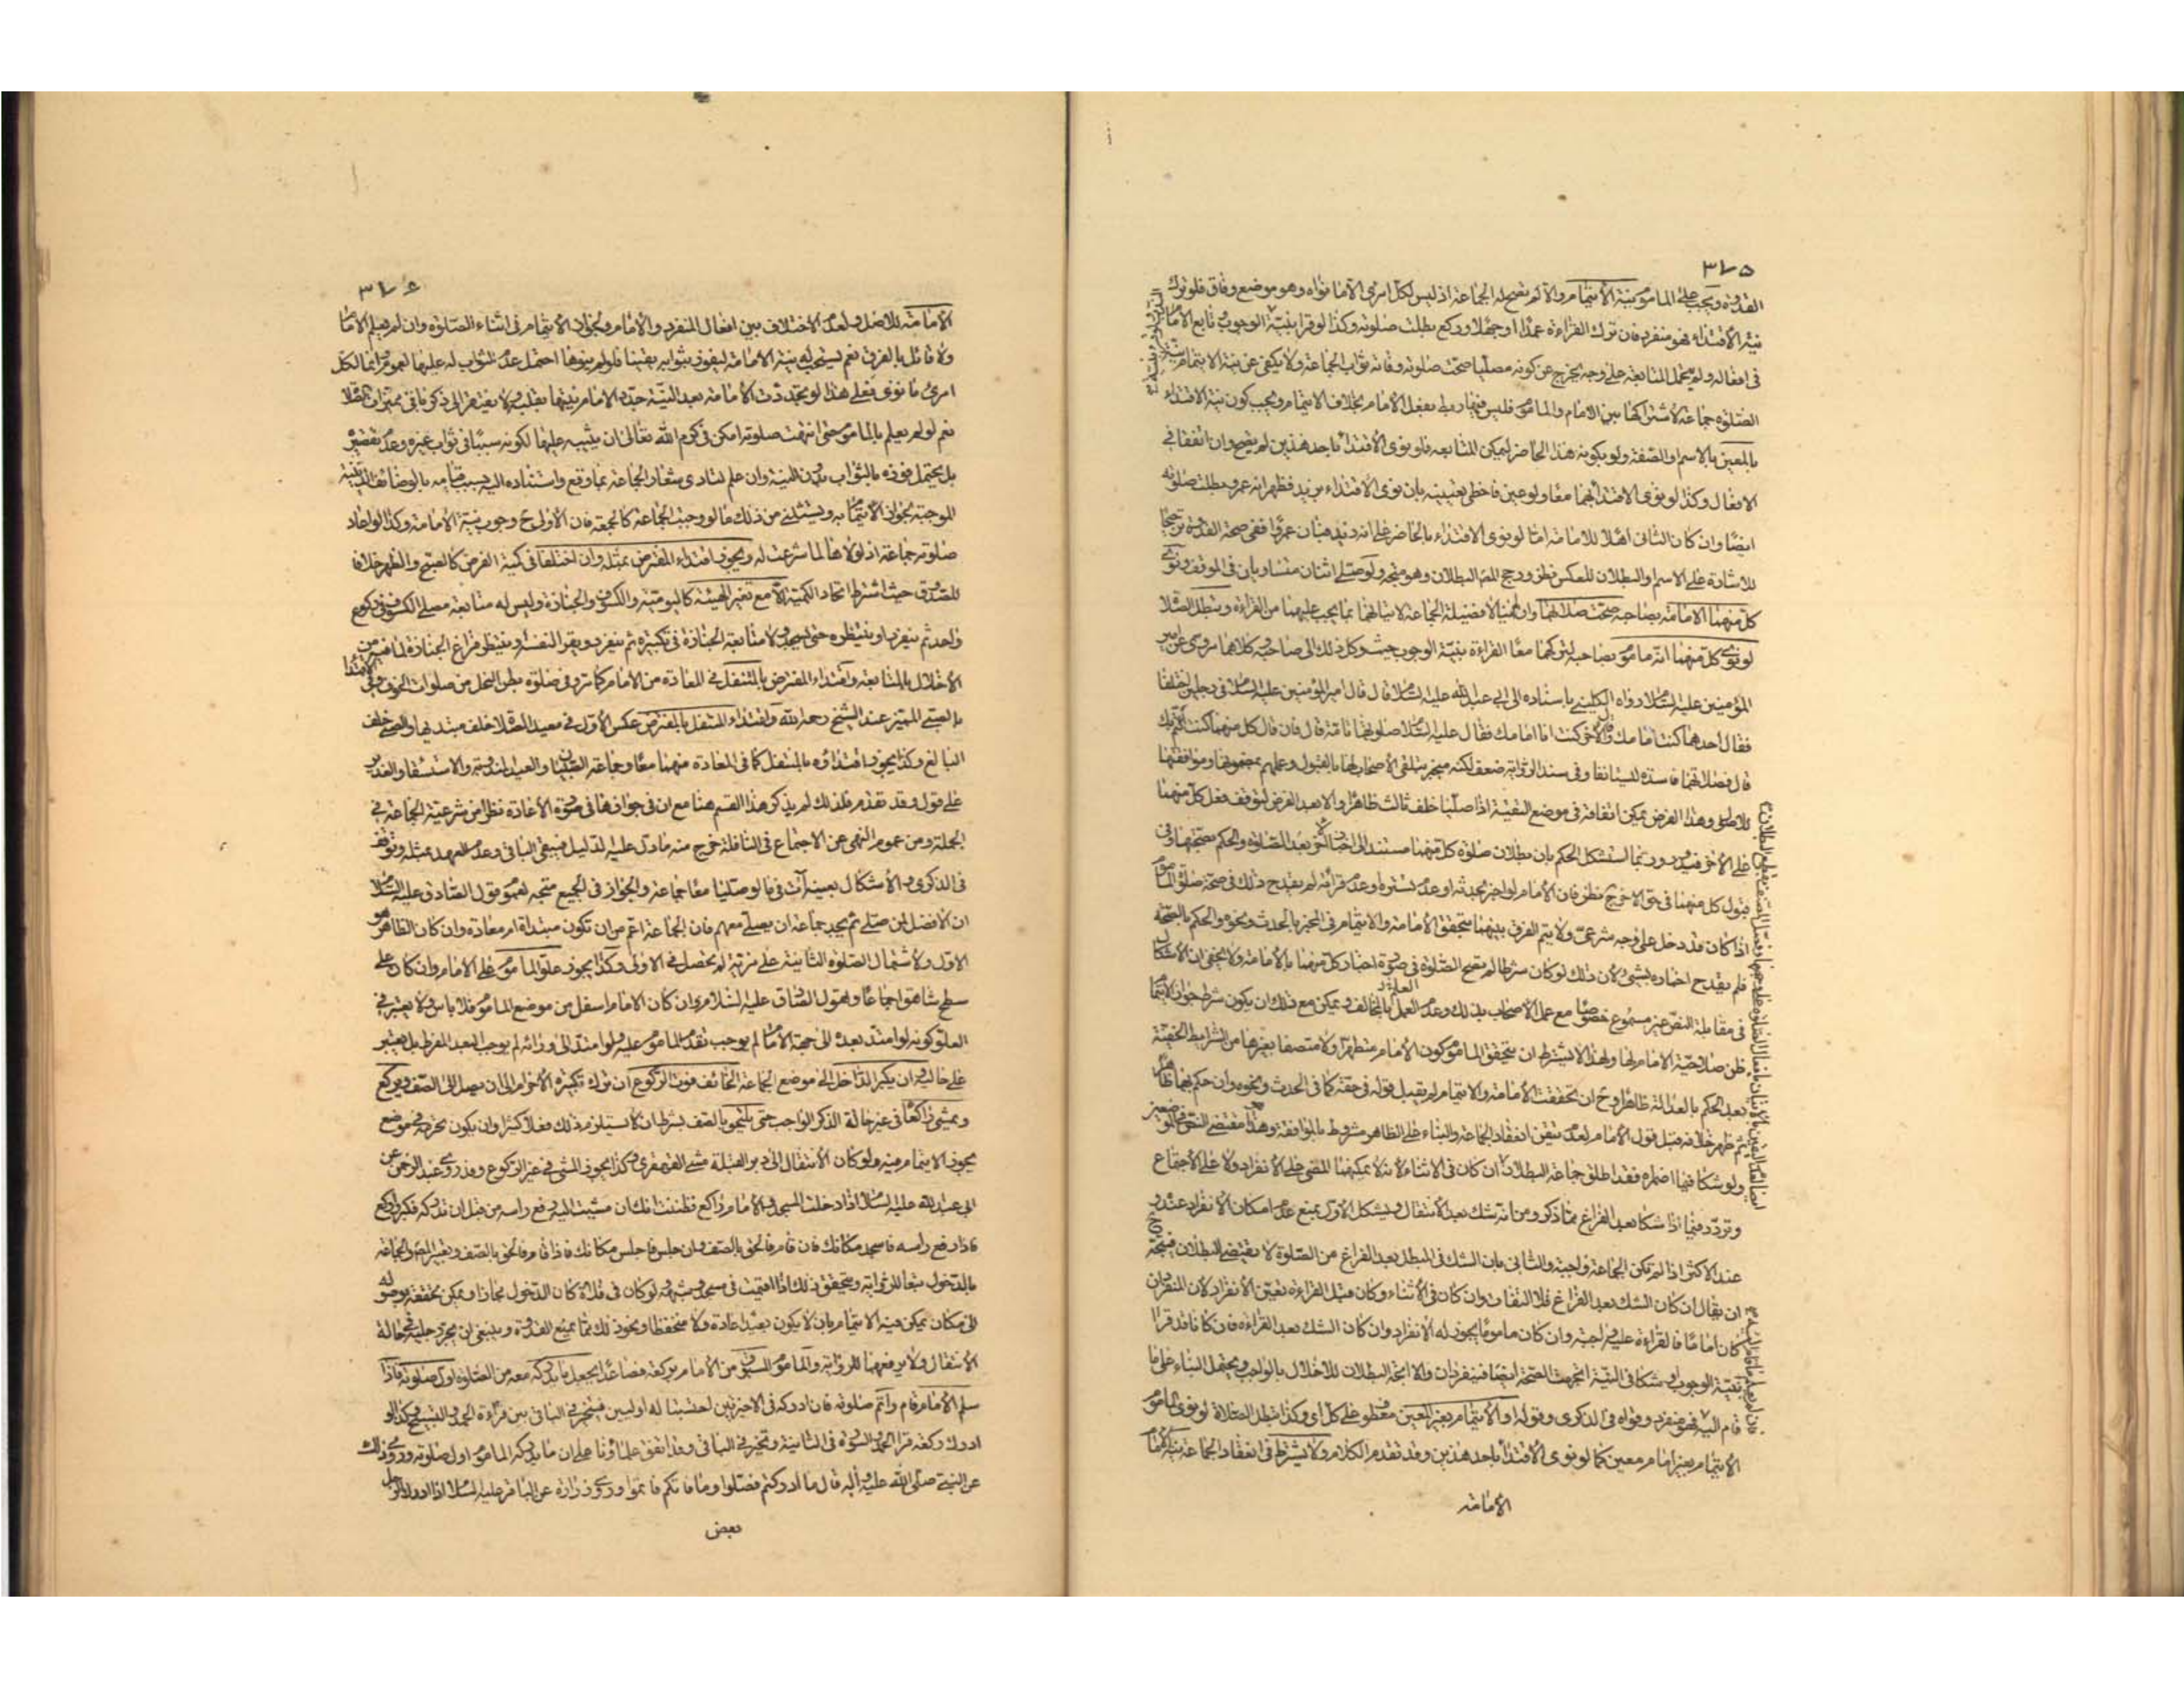 ٣٧٥
القدوة ويجب على المأموم نية الائتمام والا لم تصح له الجماعة اذ ليس لكل امرئ الا ما نواه وهو موضع وفاق فلو ترك
نية الاقتداء فهو منفرد فان ترك القراءة عمدا او جهلا وركع بطلت صلوته وكذا لو قرا بنية الوجوب تابع الامام
في افعاله ولم تحمل المتابعة على وجه يخرج عن كونه مصليا صحت صلوته وفاته ثواب الجماعة ولا يكفى عن نية الايتمام نية
الصلوة جماعة لاشتراكها بين الامام والماموم فليس فيها ربط بفعل الامام بخلاف الايتمام ويجب كون نية الاقتداء
بالمعين بالاسم او الصفة ولو بكونه هذا الحاضر ليمكن المتابعة فلو نوى الاقتداء باحد هذين لم يصح وان اتفقا في
الافعال وكذا لو نوى الاقتداء بهما معا ولو عين فاخطى تعيينه بان نوى الاقتداء بزيد فظهر انه عمرو بطلت صلوته
ايضا وان كان الثانى اهلا للامامة اما لو نوى الاقتداء بالحاضر على انه زيد فبان عمروا ففى صحة القدوة ترجيحا
للاشارة على الاسم او البطلان للعكس نظر ورجح البطلان وهو متجه ولو صلى اثنان متساويان في الموقف ونوى
كل منهما الامامة بصاحبه صحت صلاتهما وان لم ينالا فضيلة الجماعة لاتيانهما بما يجب عليهما من القراءة وتبطل الصلا
لو نوى كل منهما انه ماموم بصاحبه لتركهما معا القراءة بنية الوجوب حيث وكل ذلك الى صاحبه كلاهما مروى عن امير
المؤمنين عليه السلام رواه الكلينى باسناده الى ابى عبد الله عليه السلام قال قال امير المؤمنين عليه السلام في رجلين اختلفا
فقال احدهما كنت امامك وقال الاخر كنت انا امامك فقال عليه السلام صلوتهما تامة قال فان قال كل منهما كنت ائتم بك
قال فصلاتهما فاسدة لليستانفا وفى سند الرواية ضعف لكنه منجبر بتلقى الاصحاب لها بالقبول وعملهم بمضمونها وموافقتها
للاصل وهذا الفرض يمكن اتفاقه في موضع التقية اذا صليا خلف ثالث ظاهرا والا بعد الفرض لتوقف فعل كل منهما
على الاخر فيدور وربما استشكل الحكم بان بطلان صلوة كل منهما مستند الى اخبار الاخر بعد الصلوة والحكم بصحتها وفى
قبول كل منهما في حق الاخر ح نظر فان الامام لو اخبر بحدثه او عدم تستره او عدم قرائته لم يقدح ذلك في صحة صلوة الماموم
اذا كان قد دخل على وجه شرعى ولا يتم الفرق بينهما بتحقق الامامة والايتمام في المخبر بالحدث ونحوه والحكم بالصحة
فلم يقدح اخباره بشئ لان ذلك لو كان شرطا لم تصح الصلوة في صورة اخبار كل منهما بالامامة ولا يخفى ان الاشكال
في مقابلة النص غير مسموع خصوصا مع عمل الاصحاب بذلك وعدم العلم بالمخالف ويمكن مع ذلك ان يكون شرط جواز الايتمام
ظن صلاحية الامام لها ولهذا لا يشترط ان يتحقق الماموم كون الامام متطهرا ولا متصفا بغيرها من الشرايط الخفية
بعد الحكم بالعدالة ظاهرا وح ان تحققت الامامة والايتمام لم يقبل قوله في حقه كما في الحدث ونحوه وان حكم بهما ظاهرا
ثم ظهر خلافه قبل قول الامام لعدم تيقن انعقاد الجماعة والبناء على الظاهر مشروط بالموافقة وهذا مقتضى النص
ولو شكا فيما اضمراه فقد اطلق جماعة البطلان ان كان في الاثناء لانه لا يمكنهما المضى على الانفراد ولا على الاجتماع
وتردد فيما اذا شكا بعد الفراغ مما ذكر ومن انه شك بعد الانتقال ويشكل الاول بمنع عدم امكان الانفراد عنده
عند الاكثر اذا لم تكن الجماعة واجبة والثانى بان الشك في المبطل بعد الفراغ من الصلوة لا يقتضى البطلان فيتجه
ان يقال ان كان الشك بعد الفراغ فلا التفات وان كان في الاثناء وكان قبل القراءة تعين الانفراد لان المنفردان
كان اماما فالقراءة عليه واجبة وان كان ماموما يجوز له الانفراد وان كان الشك بعد القراءة فان كانا قد قرا
بنية الوجوب او شكا في النية اتجهت الصحة ايضا فينفردان والا اتجه البطلان للاخلال بالواجب ويحتمل البناء على ما
قام اليه فهو منفرد وقواه في الذكرى وقوله او الايتمام بغير المعين معطوف على كل اى وكذا تبطل الصلاة لو نوى الماموم
الايتمام بغير امام معين كما لو نوى الاقتداء باحد هذين وقد تقدم الكلام ولا يشترط في انعقاد الجماعة نية الامام
الامامة
٣٧٦
الامامة للاصل ولعدم الاختلاف بين افعال المنفرد والامام ويجوز ان الايتمام في اثناء الصلوة وان لم يعلم الامام
ولا قائل بالفرق نعم يستحب له نية الامامة ليفوز بثوابه يقينا فلو لم ينوها احتمل عدم الثواب له عليها لعموم انما لكل
امرئ ما نوى فعلى هذا لو تجددت الامامة بعد النية جدد الامام نيتها بقلبه
نعم لو لم يعلم بالماموم حتى انتهت صلوته امكن في كرم الله تعالى ان يثيبه عليها لكونه سببا في ثواب غيره وعدم تقصير
بل يحتمل فوزه بالثواب بدون النية وان علم لتادى شعار الجماعة بما وقع واستناده اليه بسبب قيامه بالوضائف الدينية
الموجبة لجواز الائتمام به ويستثنى من ذلك ما لو وجبت الجماعة كالجمعة فان الاولى ح وجوب نية الامامة وكذا لو اعاد
صلوته جماعة اذ لولاها لما شرعت له ويجوز اقتداء المفترض بمثله وان اختلفا في كمية الفرض كالصبح والظهر خلافا
للصدوق حيث اشترط اتحاد الكمية الا مع تغير الهيئة كاليومية والكسوف والجنازة وليس له متابعة مصلى الكسوف في ركوع
واحد ثم ينفرد او ينتظره حتى يسجد ولا متابعة الجنازة في تكبيرة ثم ينفرد ويقرا لنفسه وينتظر فراغ الجنازة لما فيه من
الاخلال بالمتابعة واقتداء المفترض بالمتنفل في المعادة من الامام كما تر وفى صلوة بطن النخل من صلوات الخوف وفى الاقتداء
بالصبى المميز عند الشيخ رحمه الله واقتداء المتنفل بالمفترض عكس الاول في معيد الصلا خلف مبتديها والصبى خلف
البالغ وكذا يجوز اقتداؤه بالمتنفل كما في المعادة منهما معا وجماعة الصبيان والعيد المندوبة والاستسقاء والغدير
على قول وقد تقدم فلذلك لم يذكر هذا القسم هنا مع ان في جوازها في صورة الاعادة نظرا من شرعية الجماعة في
الجملة ومن عموم النهى عن الاجتماع في النافلة خرج منه ما دل عليه الدليل فيبقى الباقى وعدم العهد بمثله وتوقف
في الذكرى والاشكال بعينه آت في ما لو صليا معا جماعة والجواز في الجميع متجه لعموم قول الصادق عليه السلام
ان الافضل لمن صلى ثم يجد جماعة ان يصلى معهم فان الجماعة اعم من ان تكون مبتداة ام معادة وان كان الظاهر هو
الاول ولاشتمال الصلوة الثانية على مزية لم تحصل في الاولى وكذا يجوز علو الماموم على الامام وان كان على
سطح شاهق اجماعا ولقول الصادق عليه السلام ان كان الامام اسفل من موضع الماموم فلا باس ولا يعتبر في
العلو كونه لو امتد بعده الى جهة الامام لم يوجب تقدم الماموم عليه ولو امتد الى ورائه لم يوجب البعد المفرط بل يعتبر
على حاليه وان يكبر الداخل الى موضع الجماعة الخائف فوت الركوع ان ترك تكبيرة الاحرام الى ان يصل الى الصف ويركع
ويمشى راكعا في غير حالة الذكر الواجب حتى يلتحق بالصف بشرط ان لا يستلزم ذلك فعلا كثيرا وان يكون تحرمه في موضع
يجوز الايتمام فيه ولو كان الانتقال الى دبر القبلة مشى القهقرى وكذا يجوز المشى في غير الركوع وقد روى عبد الرحمن عن
ابى عبد الله عليه السلام اذا دخلت المسجد والامام راكع فظننت انك ان مشيت اليه رفع راسه من قبل ان تدركه فكبر واركع
فاذا رفع راسه فاسجد مكانك فان قام فالحق بالصف وان جلس فاجلس مكانك فاذا قام فالحق بالصف
بالدخول تبعا للرواية ويتحقق ذلك اذا اقيمت في مسجد وشبهه ولو كان في فلاة كان الدخول مجازا ويمكن تحققه بوصوله
الى مكان يمكن فيه الايتمام بان لا يكون بعيدا عادة ولا منخفظا ونحو ذلك مما يمنع القدوة وينبغى ان يجر رجليه في حالة
الانتقال ولا يرفعهما للرواية والماموم المسبوق من الامام بركعة فصاعدا يجعل ما يدركه معه من الصلوة اول صلوته فاذا
سلم الامام قام واتم صلوته فان ادركه في الاخيرتين احتسبتا له اوليين فيتخير في الباقى بين قراءة الحمد والتسبيح وكذا لو
ادرك ركعة قرا الحمد والسورة في الثانية وتخير في الباقى وقد اتفق علماؤنا على ان ما يدركه الماموم اول صلوته وروى ذلك
عن النبى صلى الله عليه واله قال ما ادركتم فصلوا وما فاتكم فاتموا وروى زرارة عن الباقر عليه السلام اذا ادرك الرجل
بعض